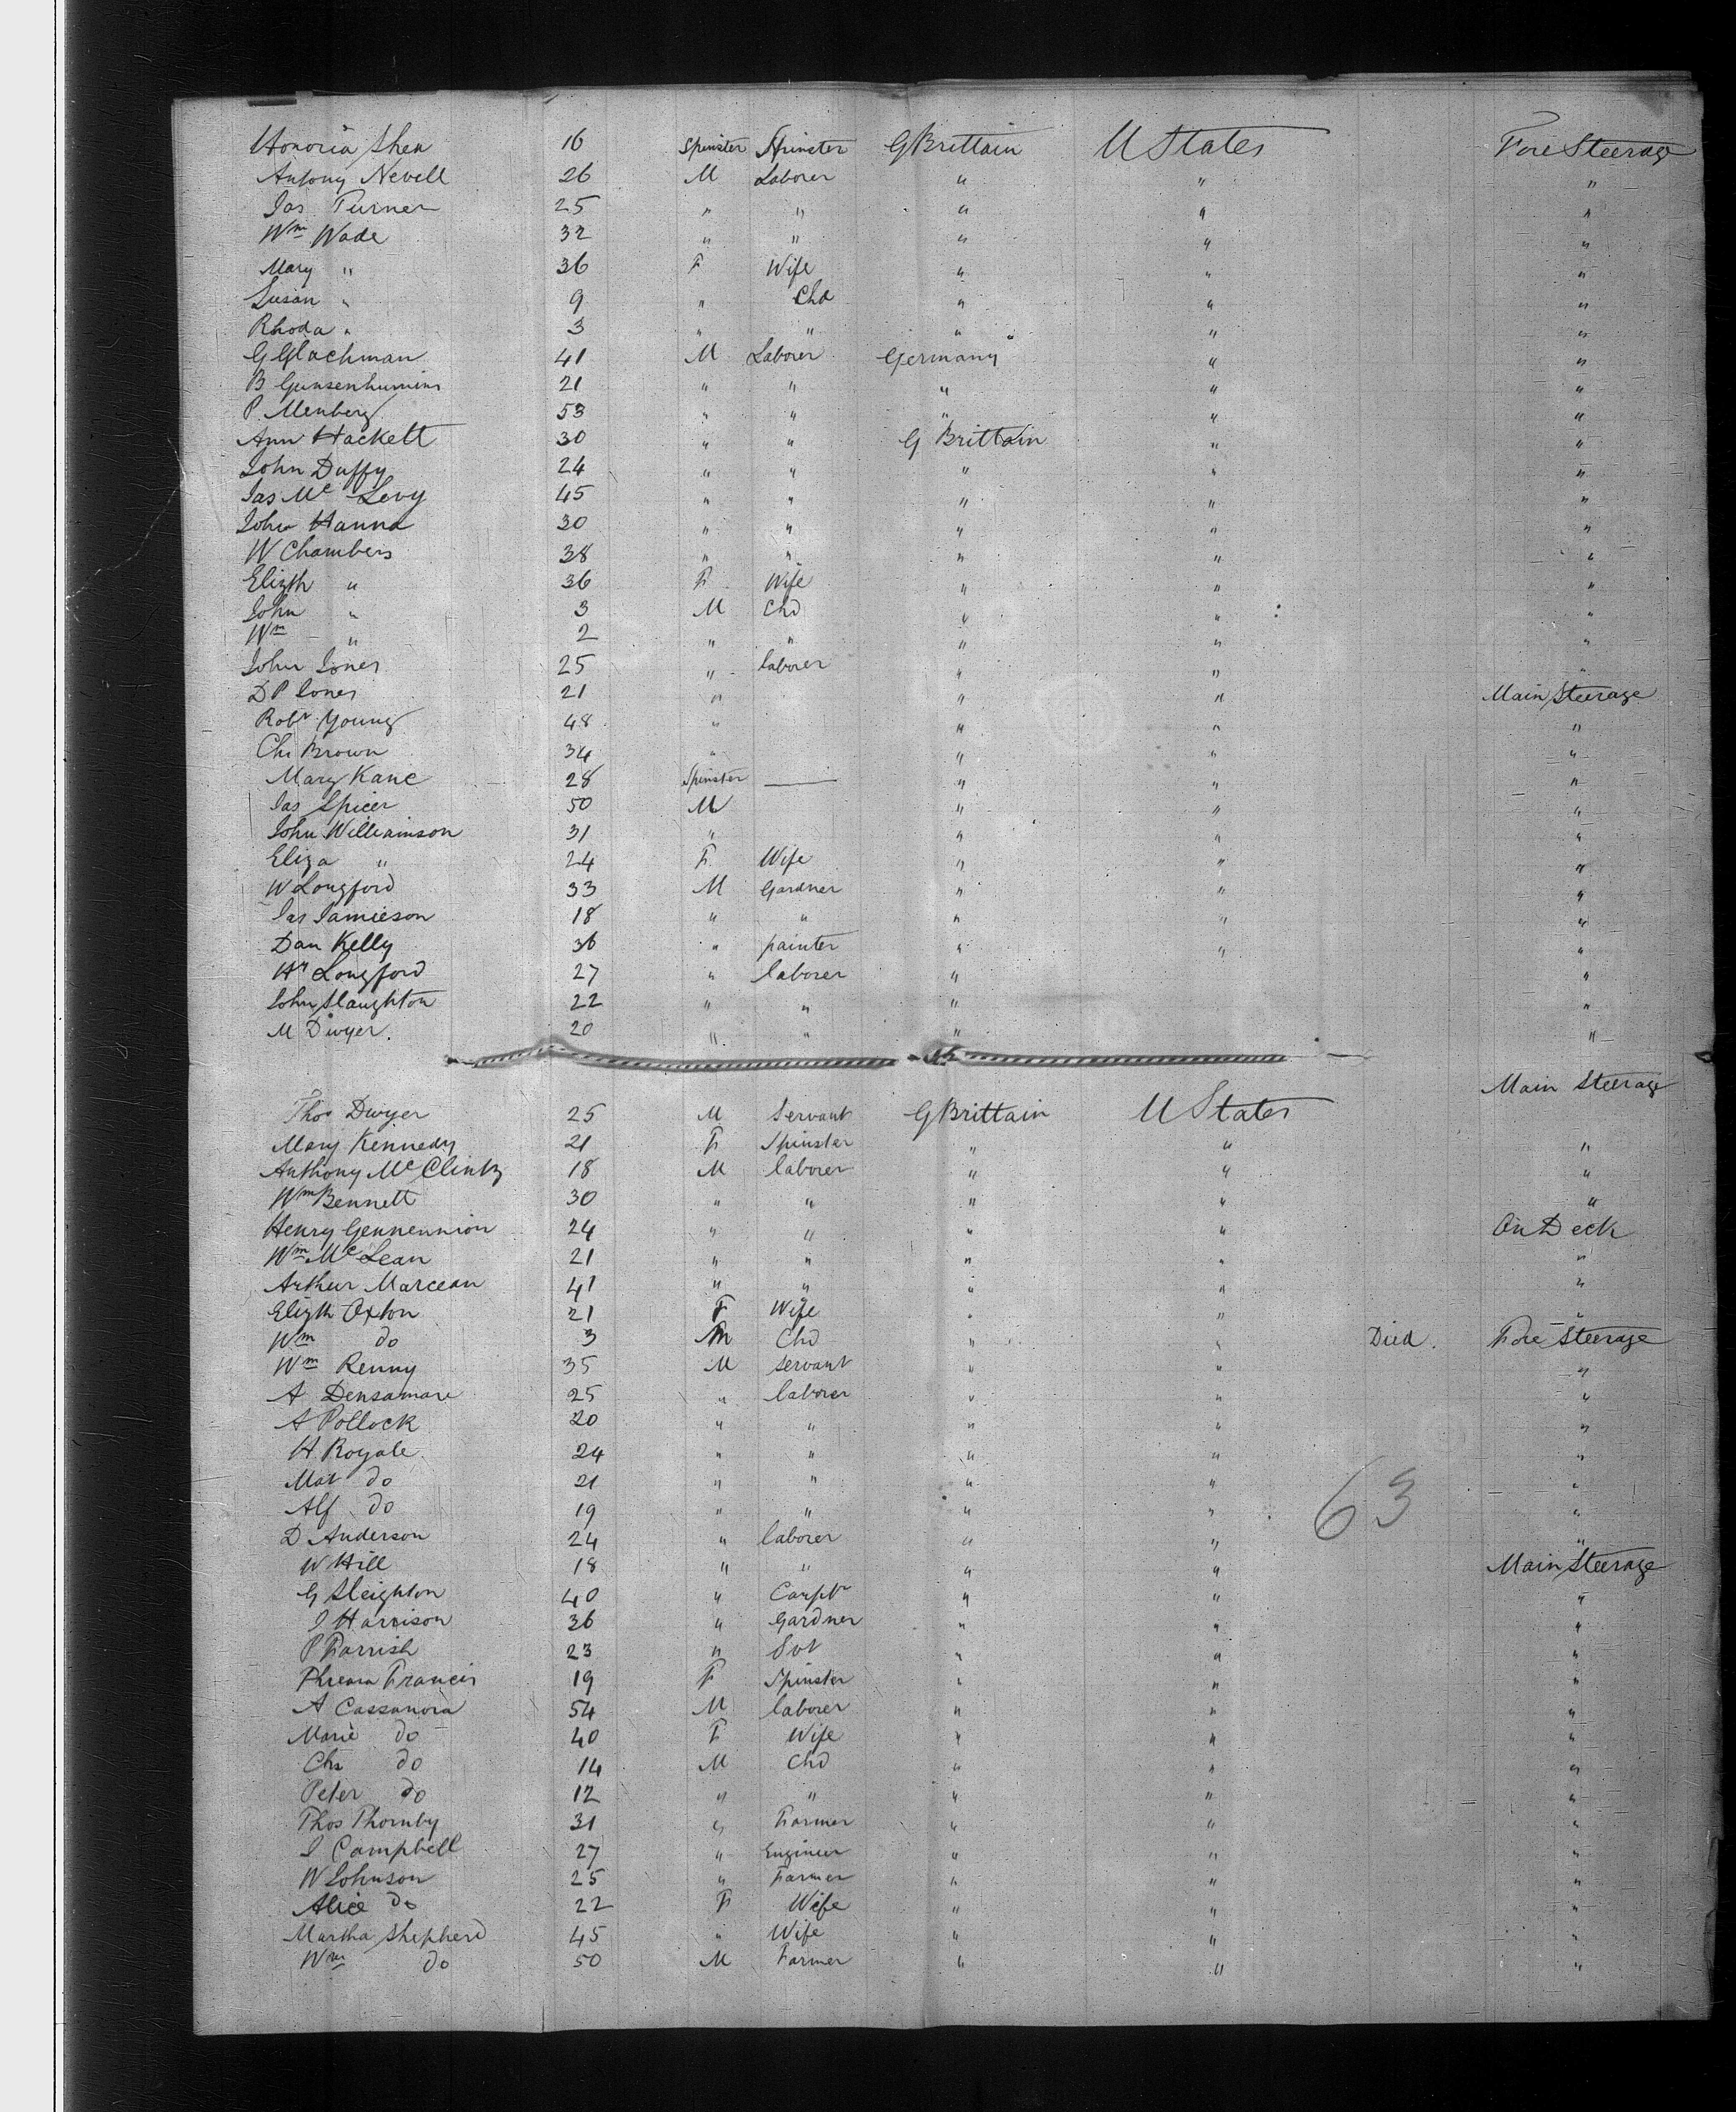 Honoria Shea 16 Spinster Spinster G Brittain U States Fore Steerage
Antony Nevell 26 M Laborer " " "
Jas Turner 25 " " " " "
Wm Wade 32 " " " " "
Mary " 36 F Wife " " "
Susan " 9 " Chd " " "
Rhoda " 3 " " " " "
G Glachman 41 M Laborer Germany " "
B 21 " " " " "
P. Menberg 53 " " " " "
Ann Hackett 30 " " G Brittain " "
John Duffy 24 " " " " "
Jas Mc Levy 45 " " " " "
John Hanna 30 " " " " "
W Chambers 38 " " " " "
Elizth " 36 F Wife " " "
John " 3 M Chd " " "
Wm " 2 " " " " "
John Jones 25 " laborer " " "
D P Jones 21 " " " Main Steerage
Robt Young 48 " " " "
Chs Brown 34 " " " "
Mary Kane 28 Spinster — " " "
Jas Spicer 50 M " " "
John Williamson 31 " " " "
Eliza " 24 F Wife " " "
W Longford 33 M Gardner " " "
Jas Jamieson 18 " " " " "
Dan Kelly 36 " painter " " "
Hy Longford 27 " laborer " "
John Slaughton 22 " " " "
M Dwyer. 20 " " " "
Main Steerage
Thos Dwyer 25 M Servant G Brittain U States
Mary Kennedy 21 F Spinster " " "
Anthony Mc Clinty 18 M laborer " " "
Wm Bennett 30 " " " " "
Henry Gennennion 24 " " " " On Deck
Wm Mc Lean 21 " " " " "
Arthur Marcean 41 " " " " "
Elizth Oxton 21 F Wife " " "
Wm do 3 M Chd " " Died. Fore Steerage
Wm Renny 35 M servant " " "
A Densamore 25 " laborer " " "
A Pollock 20 " " " " "
H. Royale 24 " " " " "
Mat do 21 " " " " "
Alf do 19 " " " " "
63
D Anderson 24 " laborer " " "
W Hill 18 " " " " Main Steerage
G Sleighton 40 " Carptr " " "
J Harrison 36 " Gardner " " "
P Farrish 23 " Svt " " "
Francis 19 F Spinster " " "
A Cassanova 54 M laborer " " "
Marie do 40 F Wife " " "
Chs do 14 M Chd " " "
Peter do 12 " " " " "
Thos Thornby 31 " Farmer " " "
J Campbell 27 " Engineer " " "
W Johnson 25 " Farmer " " "
Alice do 22 F Wife " " "
Martha Shepherd 45 " Wife " " "
Wm do 50 M Farmer " " "